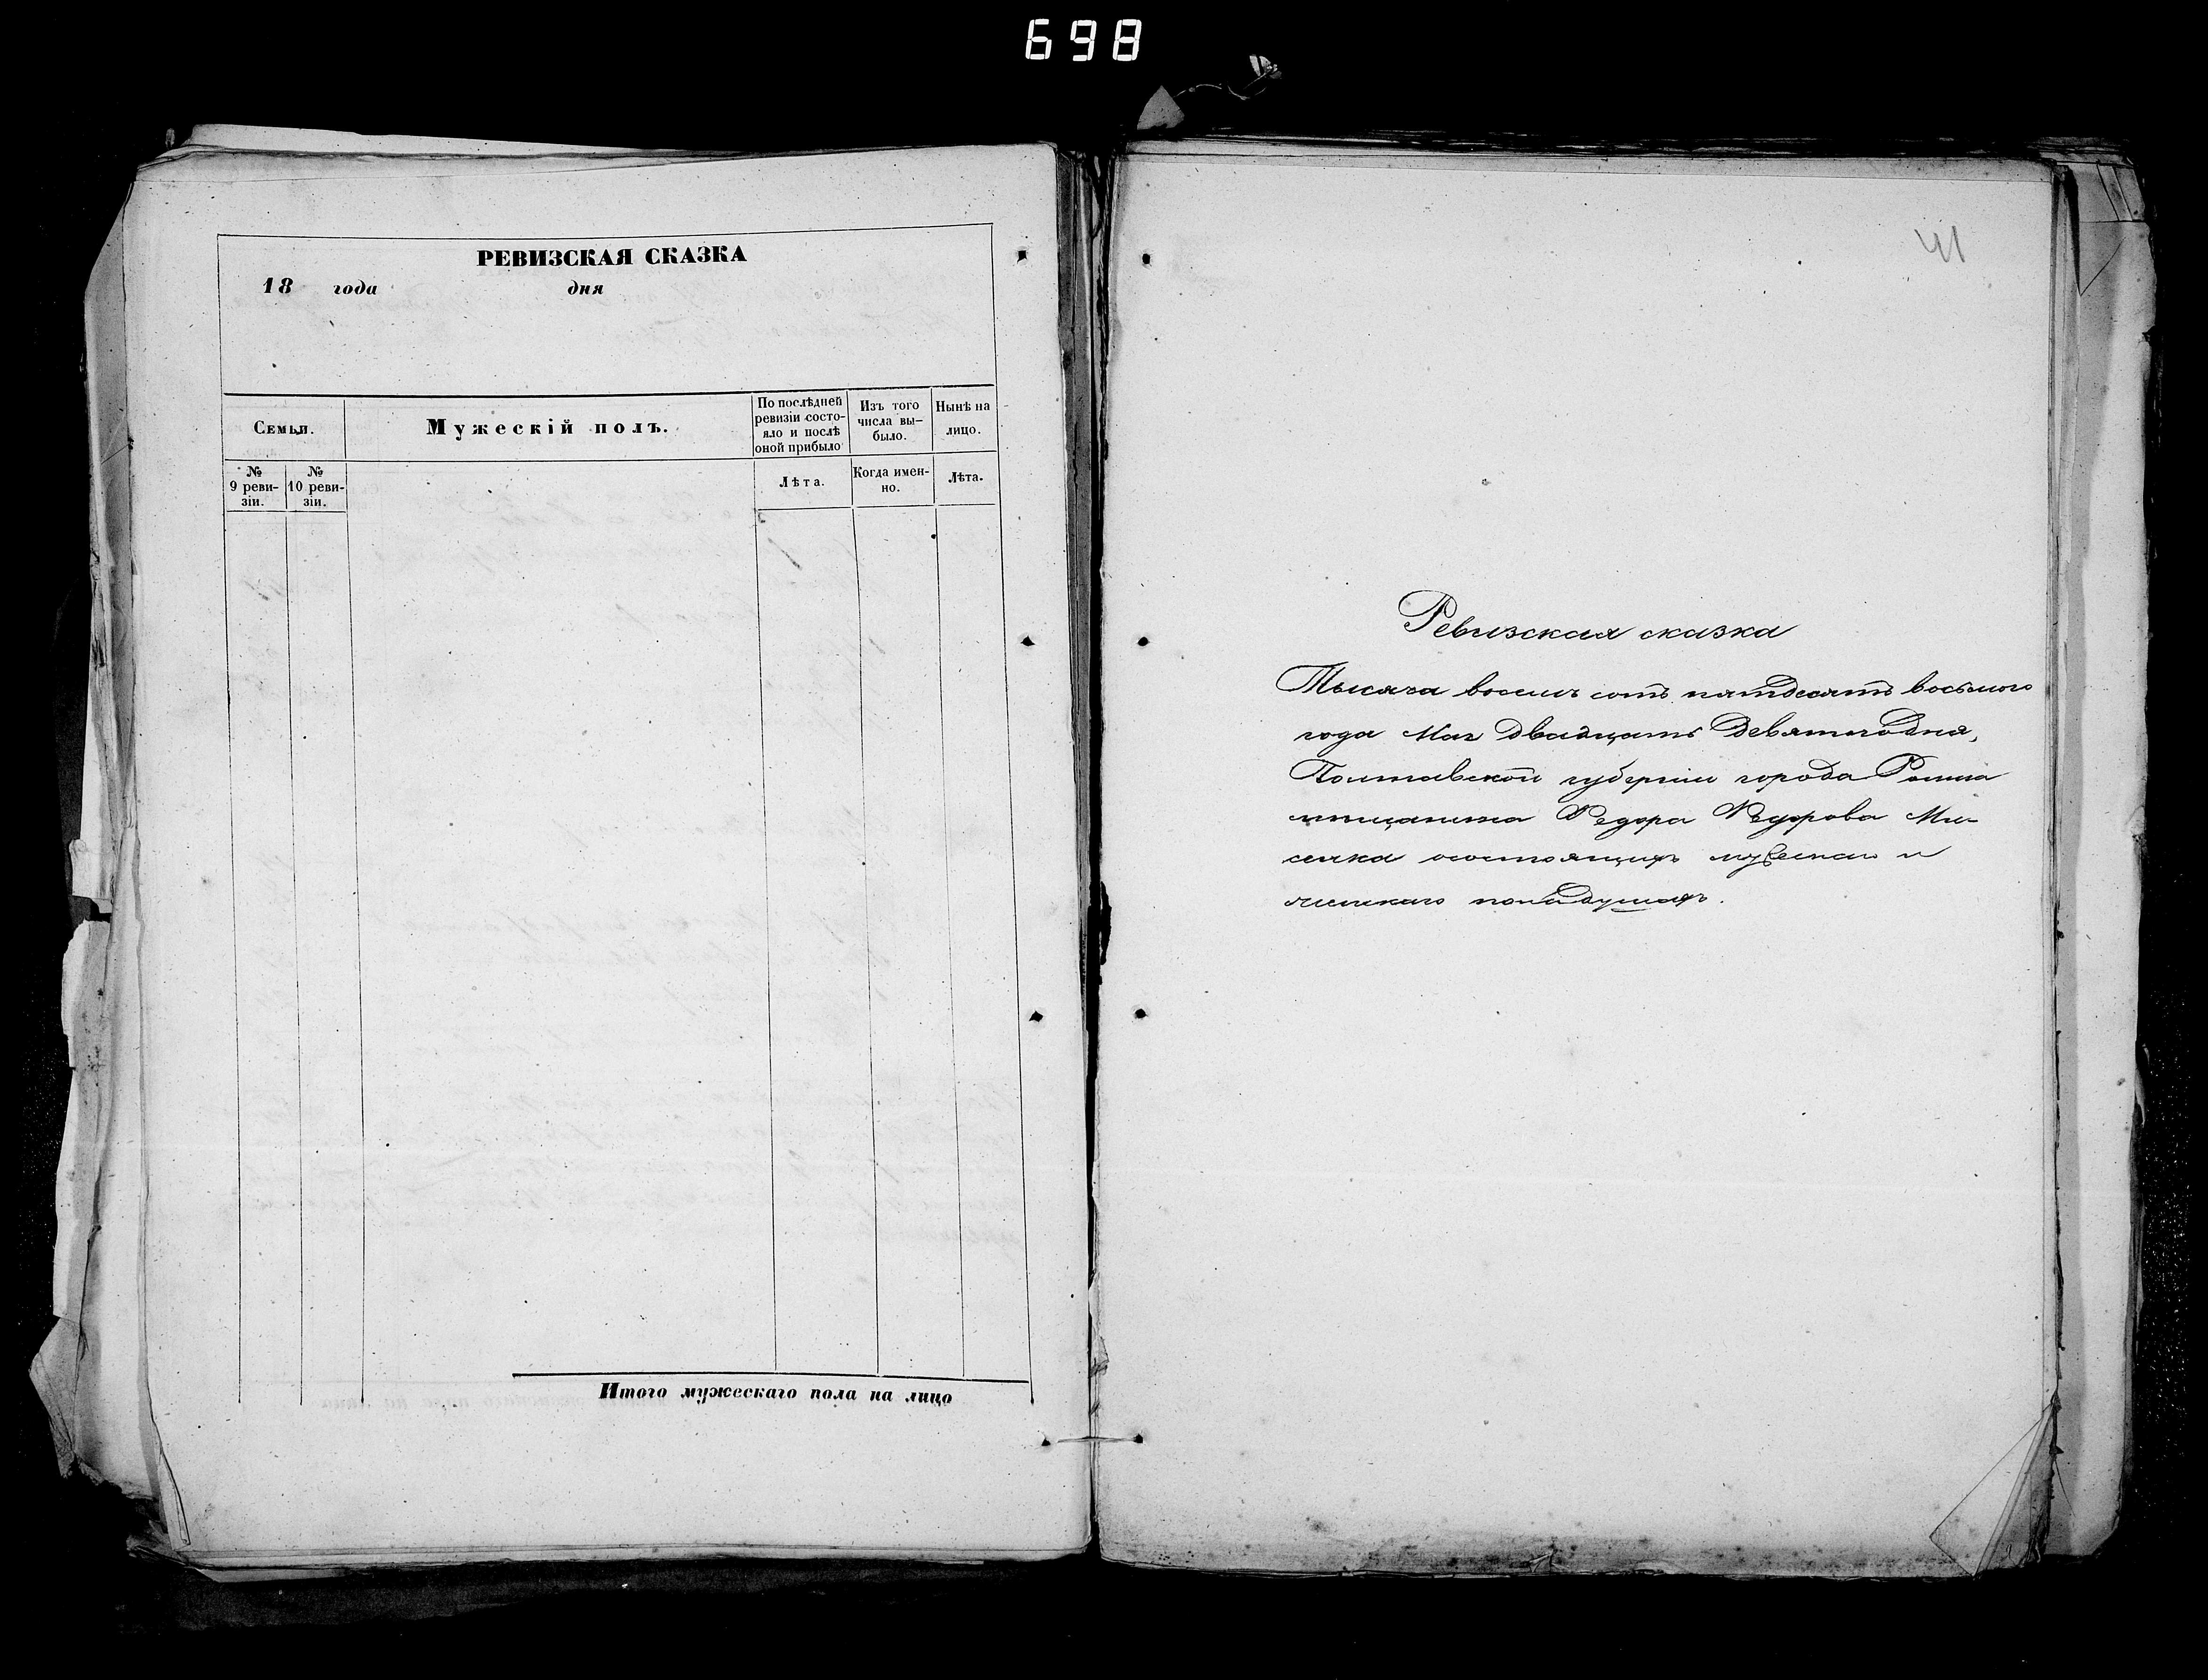 698
РЕВИЗСКАЯ СКАЗКА
18 года дня
Семьи.
Мужескій полъ.
По послѣдней
ревизіи состо-
яло и послѣ
оной прибыло
Изъ того
числа вы-
было.
Нынѣ на
лицо.
№
9 реви-
зіи.
№
10 реви-
зіи.
Лѣта.
Когда имен-
но.
Лѣта.
Итого мужескаго пола на лицо
41
Ревизская сказка
Тысяча восемь сотъ пятдесятъ восьмого
года Мая двадцать девятого дня,
Полтавской губерніи города Ромна
мѣщанина Федора Федорова
состоящихъ мужескаго и
женскаго пола душахъ.